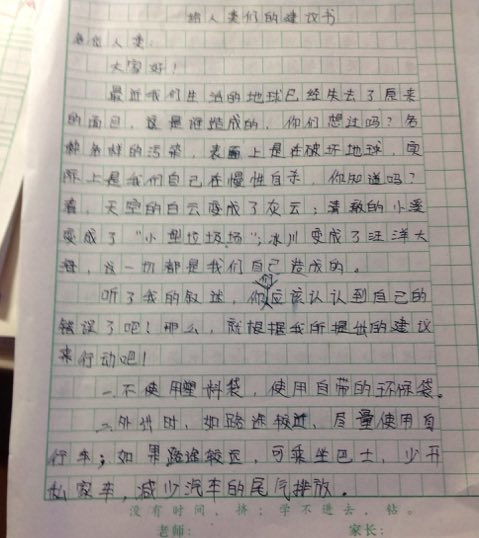 给人类们的建议书
各位人类:
大家好!
最近我们生活的地球已经失去了原来
的面包,这是谁造成的,你们想过吗?各
种各样的污染,表面上是在破坏地球,实
际上是我们自己在慢性自杀,你知道吗?
看,天空的白云变成了灰云;清澈的小溪
变成了“小型垃圾场”;冰川变成了汪洋大
海,这一切都是我们自己造成的。
听了我的叙述,你们应该认认到自己的
错误了吧!那么,就根据我所提出的建议
来行动吧!
一、不使用塑料袋,使用自带的环保袋。
二、外出时,如路途较近,尽量使用自
行车;如果路途较远,可乘坐巴士,少开
私家车,减少汽车的尾气排放。
没有时间,挤;学不进去,钻。
老师: 家长: